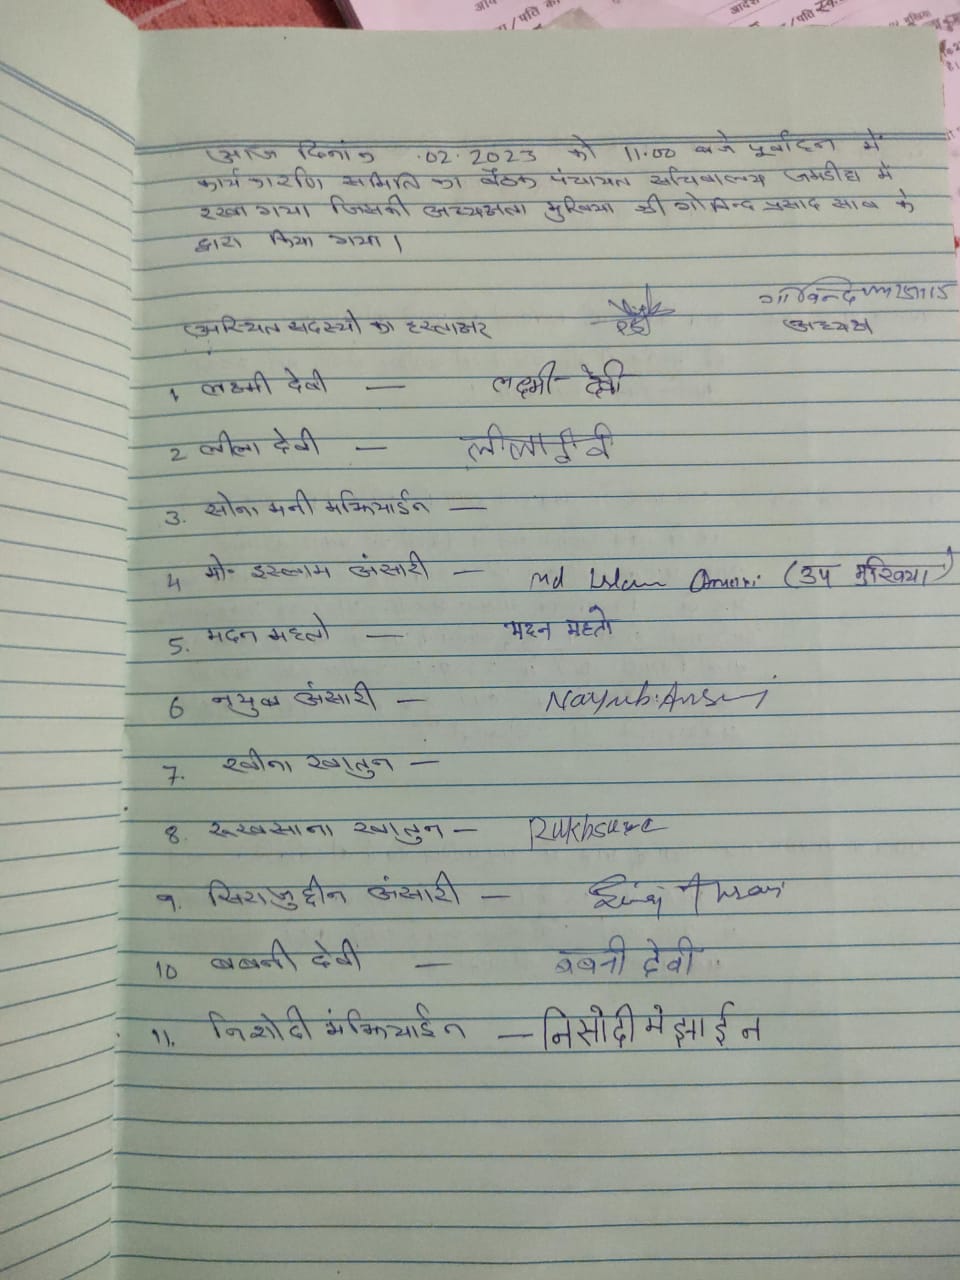 आज दिनांक .02.2023 को 11.00 बजे पूर्वाहन में
कार्यकारणि समिति का बैठक पंचायत सचिवालय जमडीहा में
रखा गया जिसकी अध्यक्षता मुखिया श्री गोविन्द प्रसाद साव के
द्वारा किया गया।
गोविन्द
उपस्थित सदस्यो का हस्ताक्षर अध्यक्ष
1 लक्ष्मी देवी — लक्ष्मी देवी
2 लीला देवी — लीला देवी
3. सोना मनी मझियाईन —
4 मो॰ इस्लाम अंसारी — Md Islam Ansari (उप मुखिया)
5. मदन महतो — मदन महतो
6 नयुब अंसारी — Nayub Ansari
7. रबीना खातुन —
8. रूखसाना खातुन — Rukhsana
9. सिराजुद्दीन अंसारी — Siraj Ansari
10 बबनी देवी — बबनी देवी
11. निशोदी मंझियाईन — निसोदी मेझाईन